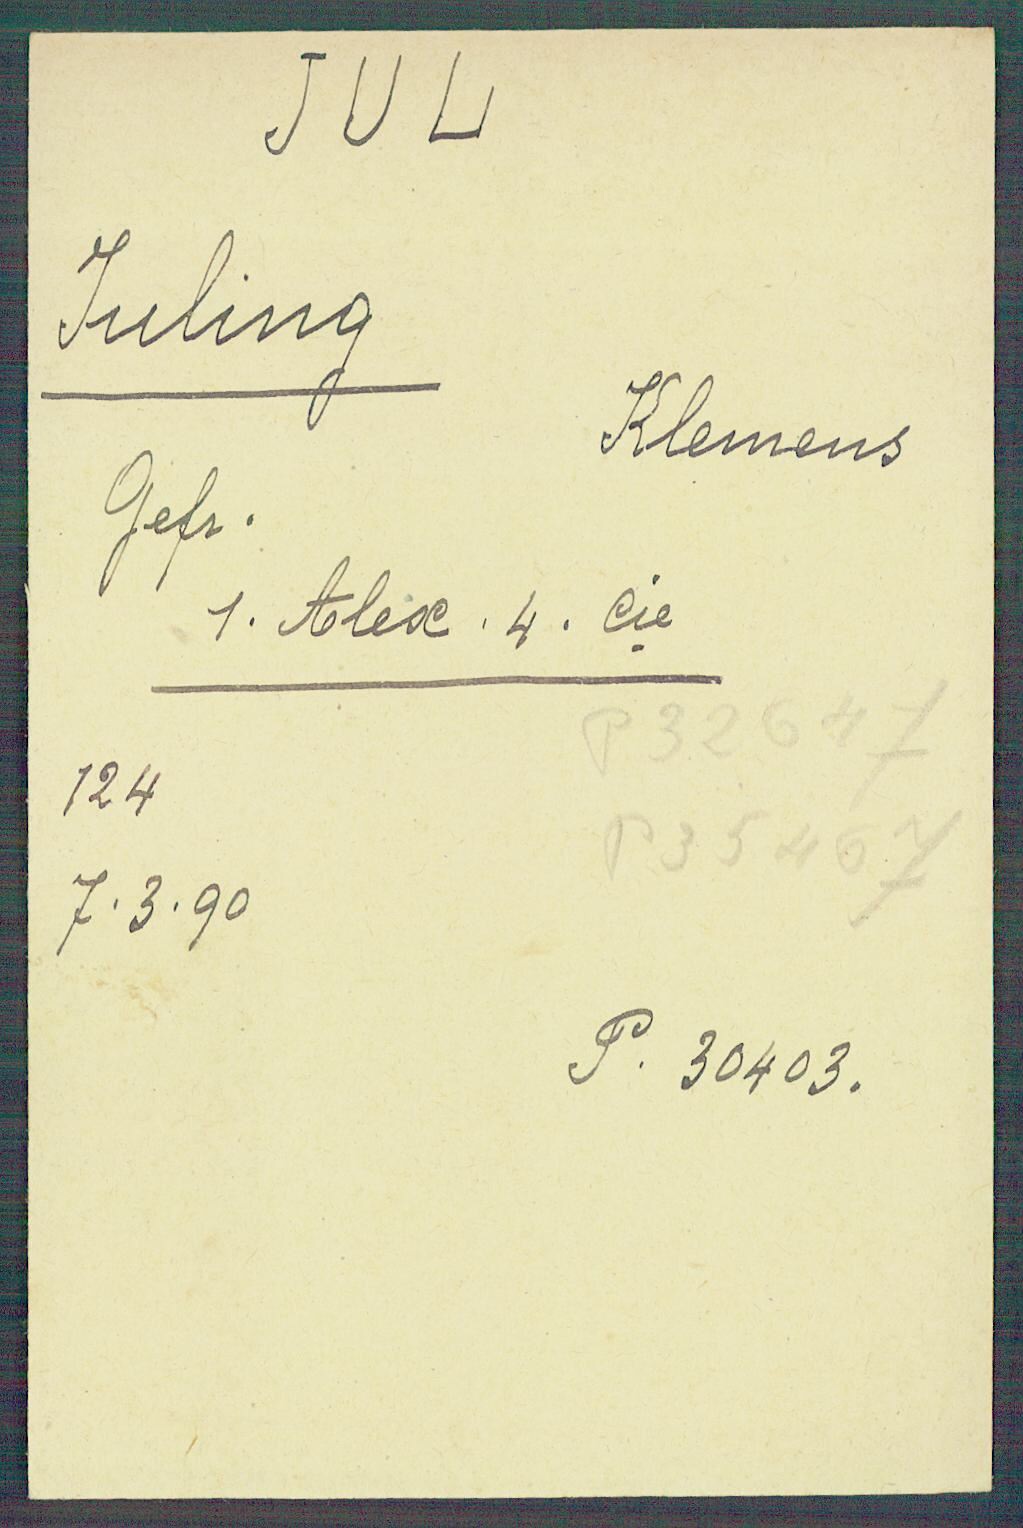 JUL
Juling
Klemens
Gefr.
1. Alex. 4. Cie
P 32647
124
P 35467
7.3.90
P. 30403.